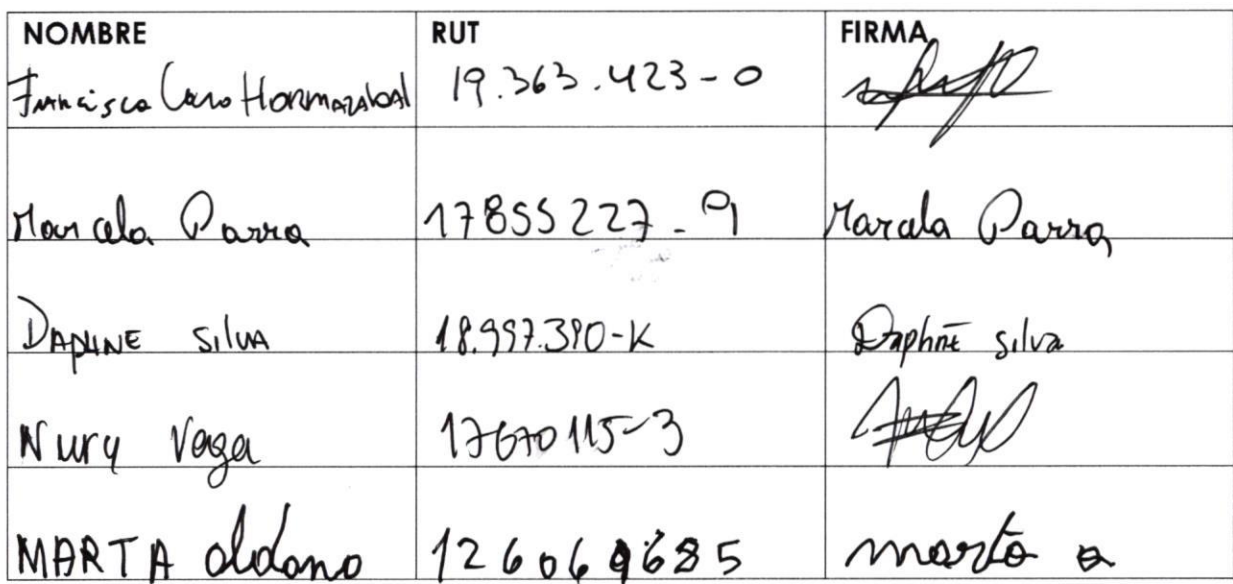 NOMBRE RUT FIRMA
Francisca Caro Hormazabal 19.363.423-0
Marcela Parra 17855227-9 Marcela Parra
DAPHNE SILVA 18.997.390-K Daphne Silva
Nury Vega 17670115-3
MARTA aldana marta a